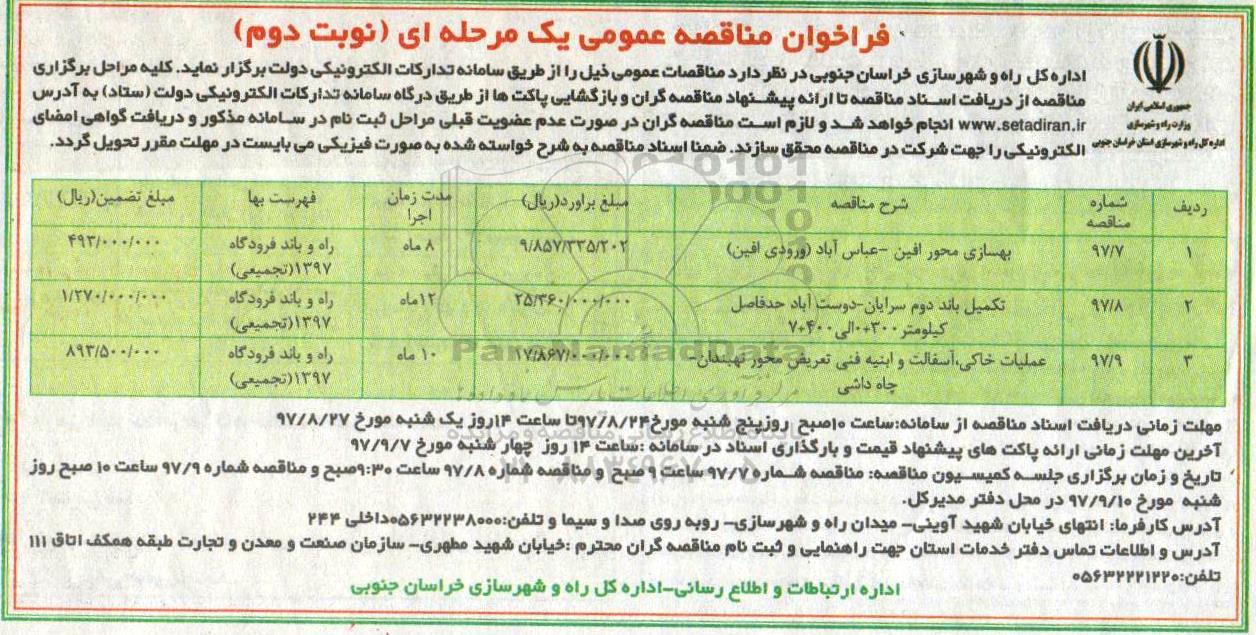 فراخوان مناقصه عمومی یک مرحله ای (نوبت دوم)
جمهوری اسلامی ایران
وزارت راه و شهرسازی
اداره کل راه و شهرسازی استان خراسان جنوبی
اداره کل راه و شهرسازی خراسان جنوبی در نظر دارد مناقصات عمومی ذیل را از طریق سامانه تدارکات الکترونیکی دولت برگزار نماید. کلیه مراحل برگزاری
مناقصه از دریافت اسناد مناقصه تا ارائه پیشنهاد مناقصه گران و بازگشایی پاکت ها از طریق درگاه سامانه تدارکات الکترونیکی دولت (ستاد) به آدرس
www.setadiran.ir انجام خواهد شد و لازم است مناقصه گران در صورت عدم عضویت قبلی مراحل ثبت نام در سامانه مذکور و دریافت گواهی امضای
الکترونیکی را جهت شرکت در مناقصه محقق سازند. ضمنا اسناد مناقصه به شرح خواسته شده به صورت فیزیکی می بایست در مهلت مقرر تحویل گردد.
ردیف شماره مناقصه شرح مناقصه مبلغ براورد(ریال) مدت زمان اجرا فهرست بها مبلغ تضمین(ریال)
۱ ۹۷/۷ بهسازی محور افین -عباس آباد (ورودی افین) ۹/۸۵۷/۳۳۵/۲۰۲ ۸ ماه راه و باند فرودگاه ۱۳۹۷(تجمیعی) ۴۹۳/۰۰۰/۰۰۰
۲ ۹۷/۸ تکمیل باند دوم سرایان-دوست آباد حدفاصل کیلومتر ۳۰۰+۰الی۴۰۰+۷ ۲۵/۳۶۰/۰۰۰/۰۰۰ ۱۲ماه راه و باند فرودگاه ۱۳۹۷(تجمیعی) ۱/۲۷۰/۰۰۰/۰۰۰
۳ ۹۷/۹ عملیات خاکی،آسفالت و ابنیه فنی تعریض محور نهبندان- چاه داشی ۱۷/۸۶۷/۰۰۰/۰۰۰ ۱۰ ماه راه و باند فرودگاه ۱۳۹۷(تجمیعی) ۸۹۳/۵۰۰/۰۰۰
ParsNamadData
مهلت زمانی دریافت اسناد مناقصه از سامانه:ساعت ۱۰صبح روزپنج شنبه مورخ۹۷/۸/۲۴تا ساعت ۱۴روز یک شنبه مورخ ۹۷/۸/۲۷
آخرین مهلت زمانی ارائه پاکت های پیشنهاد قیمت و بارگذاری اسناد در سامانه :ساعت ۱۴ روز چهار شنبه مورخ ۹۷/۹/۷
تاریخ و زمان برگزاری جلسه کمیسیون مناقصه: مناقصه شماره ۹۷/۷ ساعت ۹ صبح و مناقصه شماره ۹۷/۸ ساعت ۹:۳۰صبح و مناقصه شماره ۹۷/۹ ساعت ۱۰ صبح روز
شنبه مورخ ۹۷/۹/۱۰ در محل دفتر مدیرکل.
آدرس کارفرما: انتهای خیابان شهید آوینی- میدان راه و شهرسازی- روبه روی صدا و سیما و تلفن:۰۵۶۳۲۲۳۸۰۰۰داخلی ۲۴۴
آدرس و اطلاعات تماس دفتر خدمات استان جهت راهنمایی و ثبت نام مناقصه گران محترم :خیابان شهید مطهری- سازمان صنعت و معدن و تجارت طبقه همکف اتاق ۱۱۱
تلفن:۰۵۶۳۲۲۲۱۲۲۰
اداره ارتباطات و اطلاع رسانی-اداره کل راه و شهرسازی خراسان جنوبی